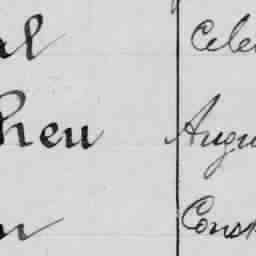 al Cele
heu Augu
n Const